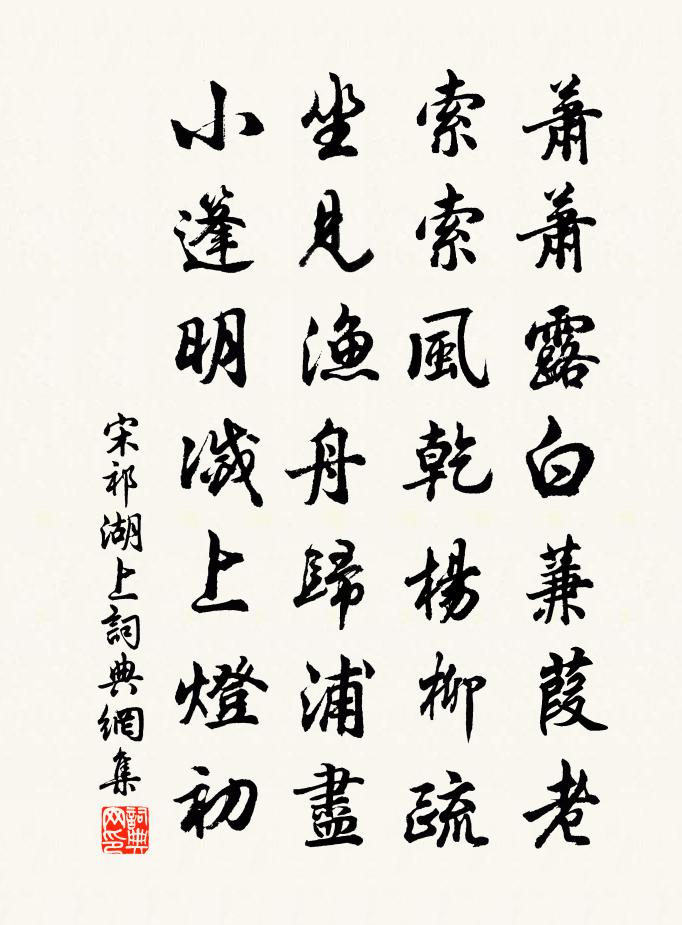 蕭蕭露白蒹葭老
索索風乾楊柳疏
坐見漁舟歸浦盡
小蓬明滅上燈初
宋祁湖上詞典網集
詞典网印